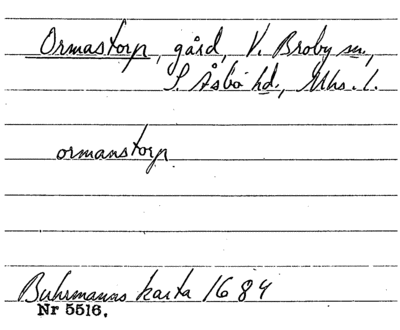 Ormastorp, gård, V. Broby sn,
S. Åsbo hd, Mhs. l.
ormanstorp
Buhrmanns karta 1684
Nr 5516.